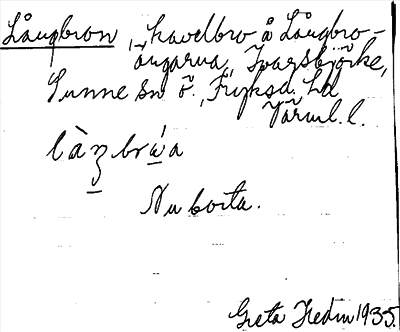 Långbron, kavelbro å Långbro-
ängarna, Ivarsbjörke,
Sunne sn ö., Fryksd. hd
Värml. l.
làŋbrá̱a
Nu borta.
Greta Hedin 1935.